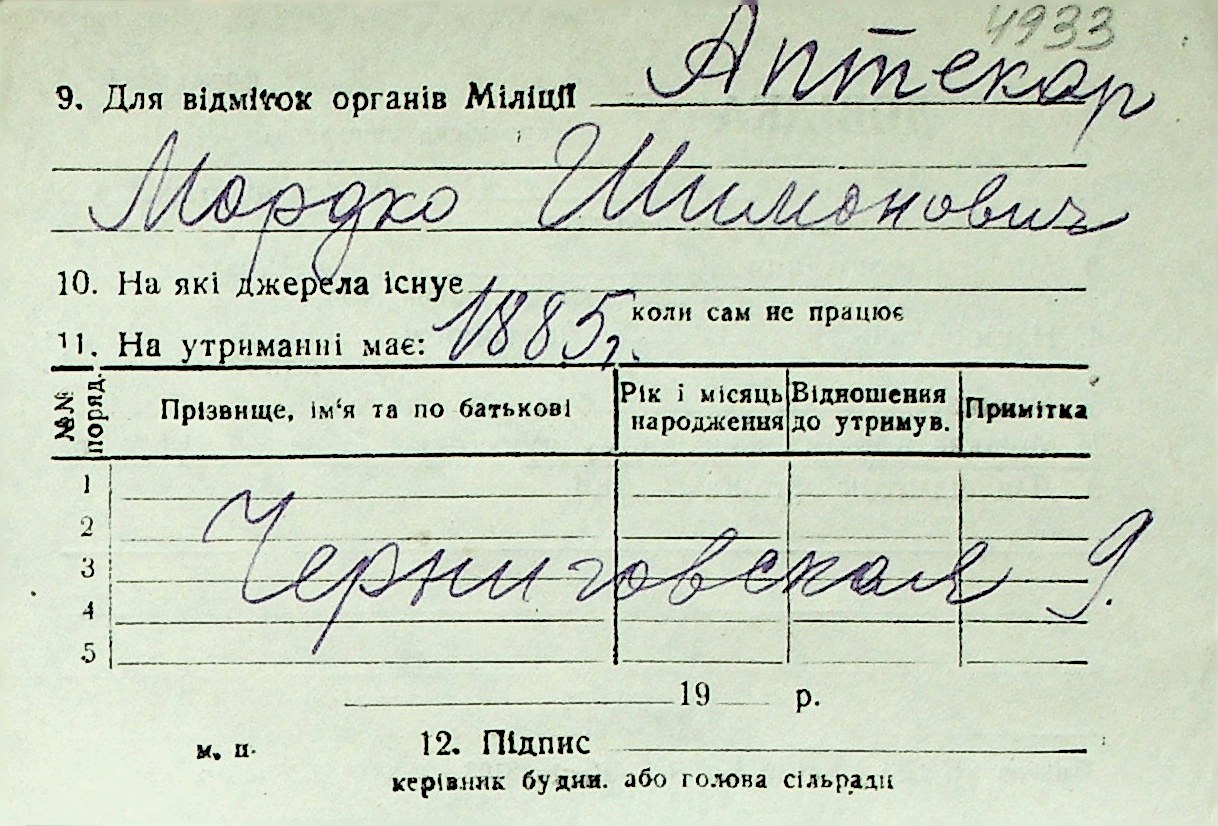 4933
9. Для відміток органів Міліції Аптекар
Мордко Шимонович
10. На які джерела існує
коли сам не працює
11. На утриманні має: 1885 г.
№№ поряд. Прізвище, ім'я та по батькові Рік і місяць народження Відношення до утримув. Примітка
1
2
3 Черниговская 9.
4
5
19 р.
м. п. 12. Підпис
керівник будин. або голова сільради